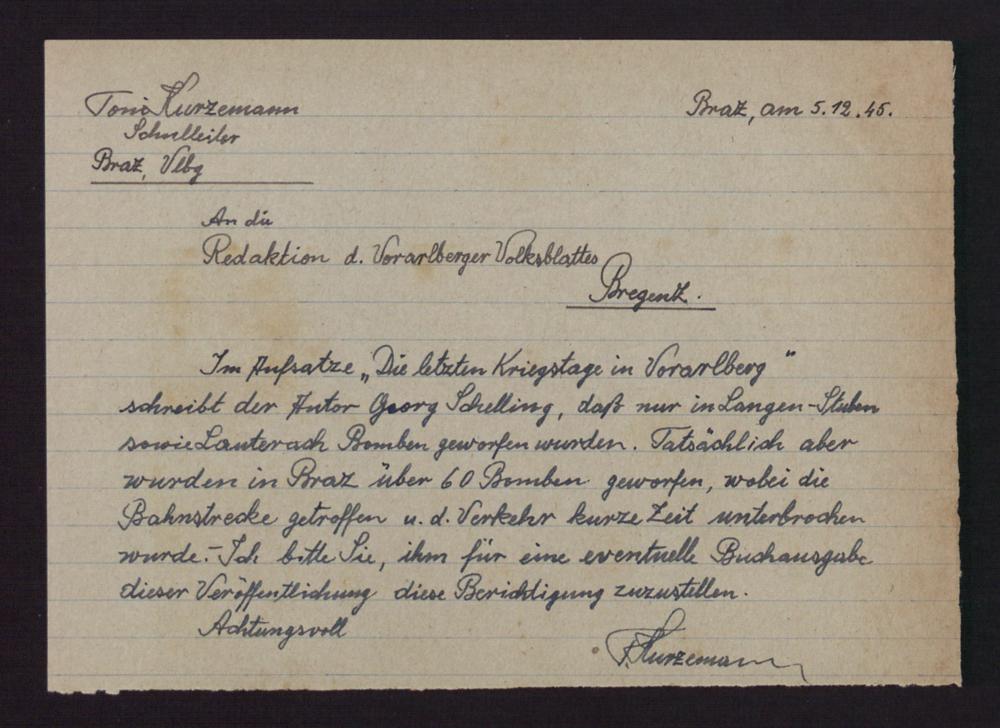 Toni Kurzemann
Braz, am 5.12.45.
Schulleiter
Braz, Vlbg
An die
Redaktion d. Vorarlberger Volksblattes
Bregenz.
Im Aufsatze „Die letzten Kriegstage in Vorarlberg"
schreibt der Autor Georg Schelling, daß nur in Langen-Stuben
sowie Lauterach Bomben geworfen wurden. Tatsächlich aber
wurden in Braz über 60 Bomben geworfen, wobei die
Bahnstrecke getroffen u. d. Verkehr kurze Zeit unterbrochen
wurde. - Ich bitte Sie, ihm für eine eventuelle Buchausgabe
dieser Veröffentlichung diese Berichtigung zuzustellen.
Achtungsvoll
T. Kurzemann